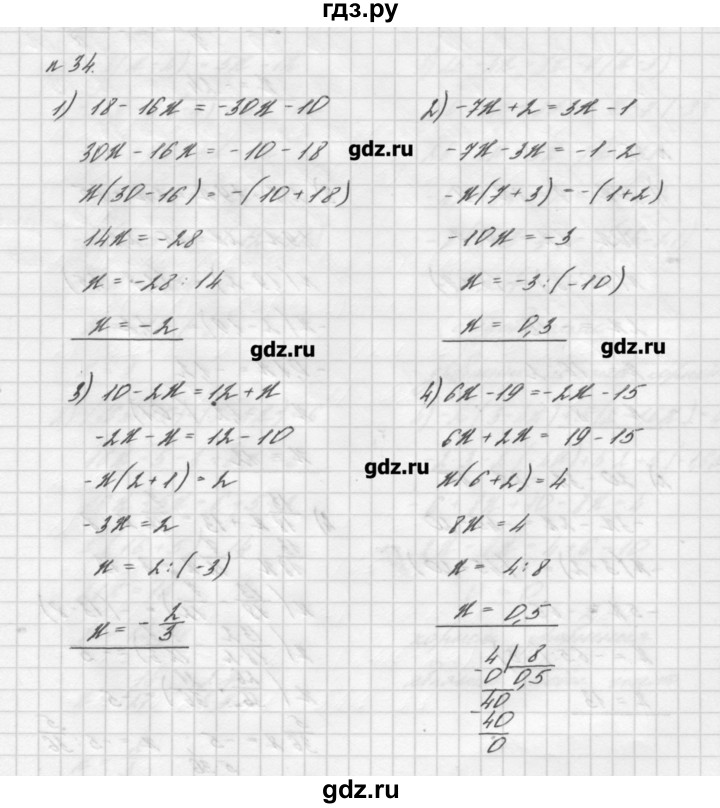 гдз.ру
п 34.
1) 18 - 16x = -30x - 10
30x - 16x = -10 - 18
x(30 - 16) = -(10 + 18)
14x = -28
x = -28 : 14
x = -2
2) -7x + 2 = 3x - 1
-7x - 3x = -1 - 2
-x(7 + 3) = -(1 + 2)
-10x = -3
x = -3 : (-10)
x = 0,3
gdz.ru
gdz.ru
gdz.ru
3) 10 - 2x = 12 + x
-2x - x = 12 - 10
-x(2 + 1) = 2
-3x = 2
x = 2 : (-3)
x = - 2/3
4) 6x - 19 = -2x - 15
6x + 2x = 19 - 15
x(6 + 2) = 4
8x = 4
x = 4 : 8
x = 0,5
gdz.ru
4 | 8
-0 | 0,5
40
-40
0
gdz.ru